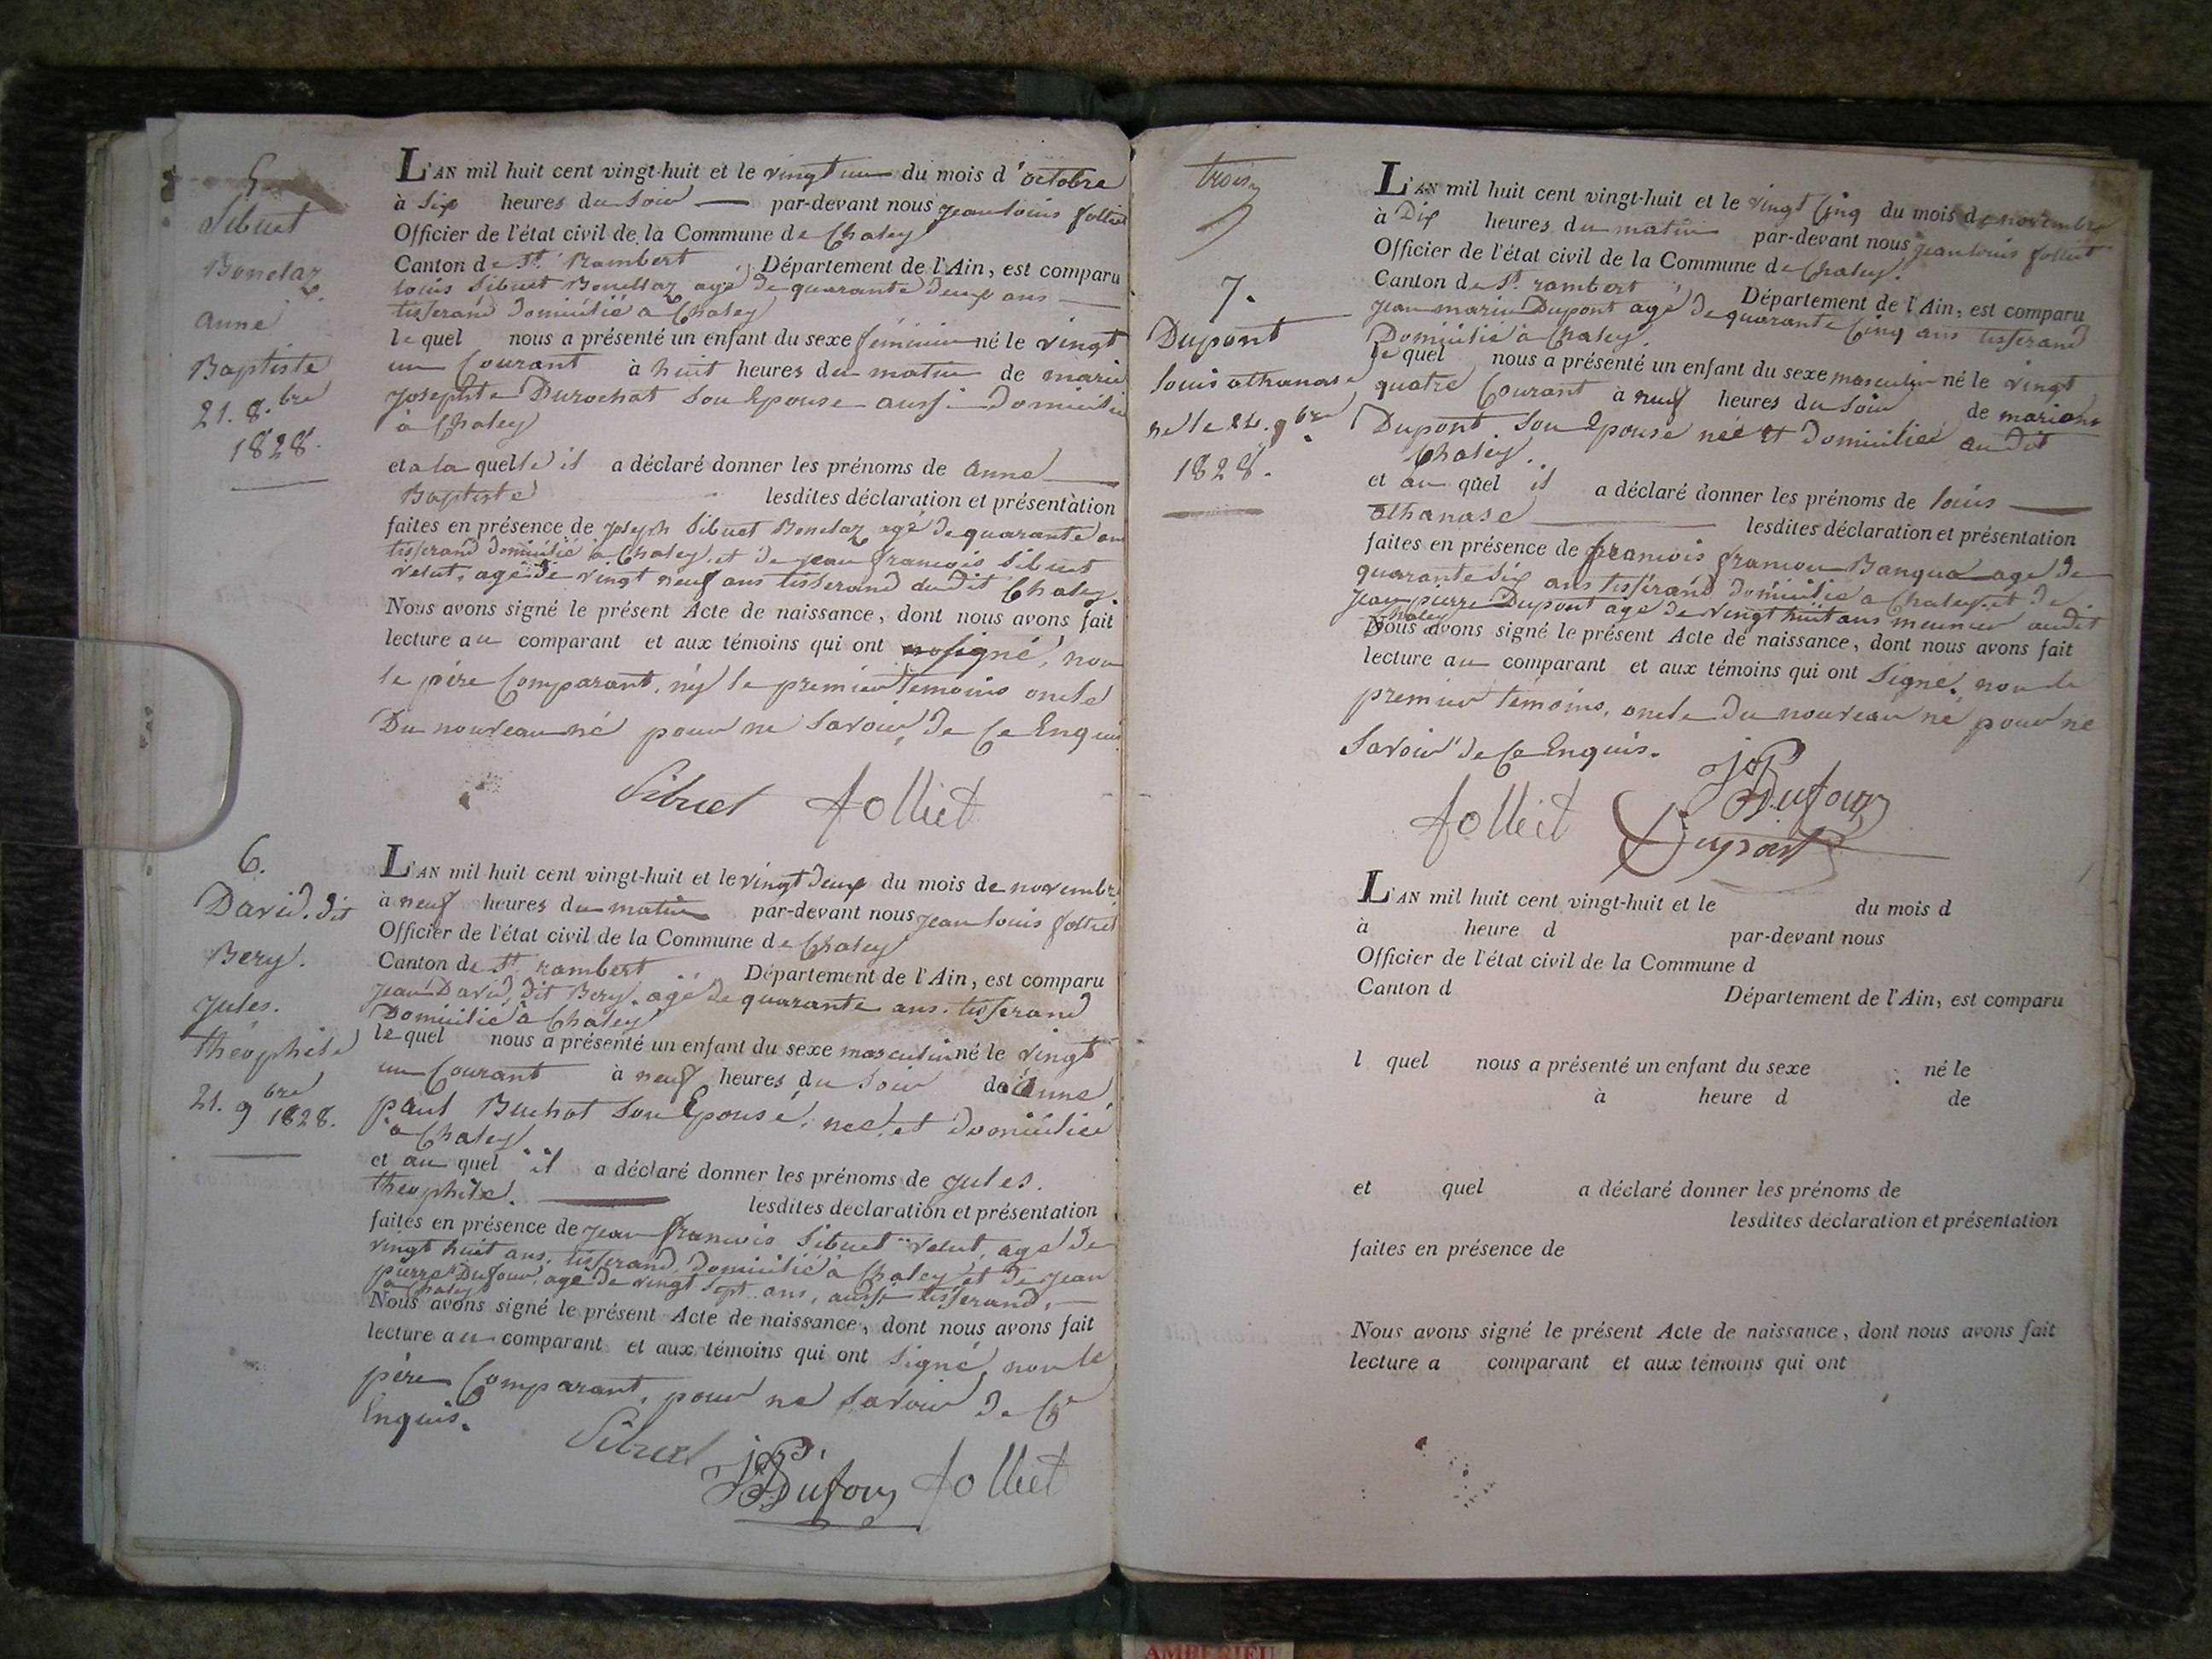 5
Sibuet
Bonelaz
anne
Baptiste
21. 8.bre
1828.
L'AN mil huit cent vingt-huit et le vingt un du mois d'octobre
à six heures du soir par-devant nous jean louis folliet
Officier de l'état civil de la Commune de Chaley
Canton de St. Rambert, Département de l'Ain, est comparu
louis Sibuet Bonellaz agé de quarante deux ans
tisserand domicilié à Chaley
lequel nous a présenté un enfant du sexe féminin né le vingt
un Courant à huit heures du matin de marie
josephte Durochat son Epouse aussi domicilié
à Chaley
et a la quelle il a déclaré donner les prénoms de anne
Baptiste lesdites déclaration et présentation
faites en présence de joseph Sibuet Bonelaz agé de quarante ans
tisserand domicilié à Chaley. et de jean francois Sibuet
velut, agé de vingt neuf ans tisserand du dit Chaley.
Nous avons signé le présent Acte de naissance, dont nous avons fait
lecture au comparant et aux témoins qui ont signé, non
le père Comparant, ny le premier témoins oncle
Du nouveau né pour ne savoir, de Ce Enquis
Sibuet folliet
6.
David. dit
Bery.
jules.
théophile
21. 9bre 1828.
L'AN mil huit cent vingt-huit et le vingt deux du mois de novembre
à neuf heures du matin par-devant nous jean louis folliet
Officier de l'état civil de la Commune de Chaley
Canton de St. rambert Département de l'Ain, est comparu
jean David, dit Bery. agé de quarante ans. tisserand
Domicilié à Chaley
lequel nous a présenté un enfant du sexe masculin né le vingt
un Courant à neuf heures du soir de anne
paul Buchot son Epouse, née. et domicilié
à Chaley
et au quel il a déclaré donner les prénoms de jules.
théophile. lesdites déclaration et présentation
faites en présence de jean francois Sibuet velut, agé de
vingt huit ans, tisserand, domicilié à Chaley et de jean
pierre Dufour, agé de vingt sept ans, aussi tisserand,
à Chaley
Nous avons signé le présent Acte de naissance, dont nous avons fait
lecture au comparant et aux témoins qui ont signé, non le
père Comparant, pour ne savoir de Ce
Enquis.
Sibuet
JP Dufour folliet
trois
7.
Dupont
louis athanase
né le 24. 9bre
1828.
L'AN mil huit cent vingt-huit et le vingt Cinq du mois de novembre
à Dix heures du matin par-devant nous jean louis folliet
Officier de l'état civil de la Commune de Chaley.
Canton de St. rambert, Département de l'Ain, est comparu
jean marie Dupont agé de quarante Cinq ans tisserand
Domicilié à Chaley.
lequel nous a présenté un enfant du sexe masculin né le vingt
quatre Courant à neuf heures du soir de marianne
Dupont son Epouse née et domiciliée au dit
Chaley.
et au quel il a déclaré donner les prénoms de louis
athanase lesdites déclaration et présentation
faites en présence de francois agé de
quarante six ans tisserand domicilié à Chaley. et de
jean pierre Dupont agé de vingt huit ans meunier audit
Chaley
Nous avons signé le présent Acte de naissance, dont nous avons fait
lecture au comparant et aux témoins qui ont signé. non le
premier témoins, oncle du nouveau né pour ne
savoir de Ce Enquis.
JP Dufour
folliet Dupont
L'AN mil huit cent vingt-huit et le du mois d
à heure d par-devant nous
Officier de l'état civil de la Commune d
Canton d Département de l'Ain, est comparu
l quel nous a présenté un enfant du sexe né le
à heure d de
et quel a déclaré donner les prénoms de
lesdites déclaration et présentation
faites en présence de
Nous avons signé le présent Acte de naissance, dont nous avons fait
lecture a comparant et aux témoins qui ont
AMBERIEU